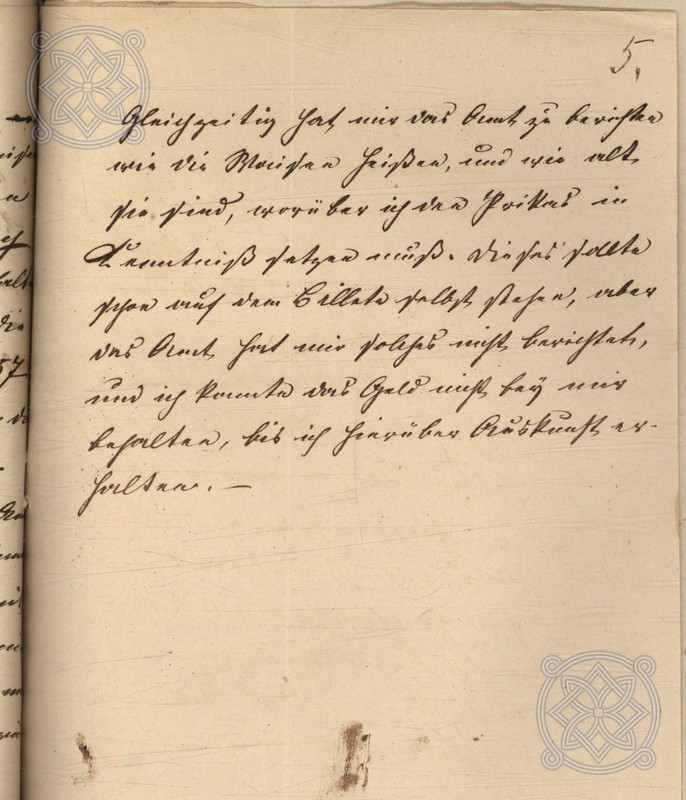 5.
Gleichzeitig hat mir das Amt zu berichten
wie die Waisen heißen, und wie alt
sie sind, worüber ich den Prikas in
Kenntniß setzen muß. Dieses sollte
schon auf dem Billete selbst stehen, aber
das Amt hat mir solches nicht berichtet,
und ich konnte das Geld nicht bey mir
behalten, bis ich hierüber Auskunft er-
halten. —